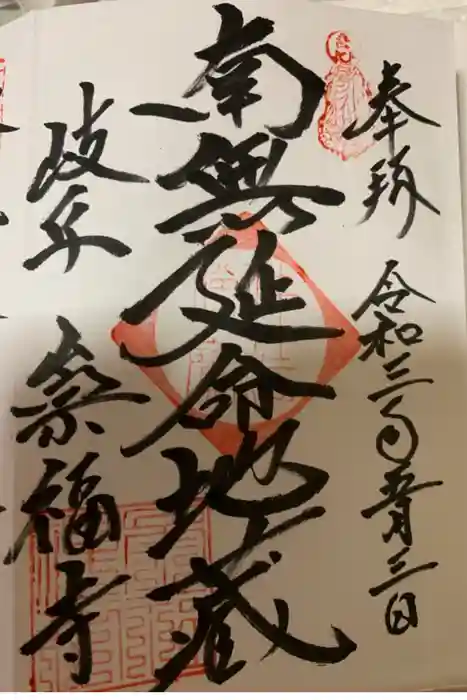 奉拝 令和三年五月三日
南無延命地蔵
岐阜 崇福寺